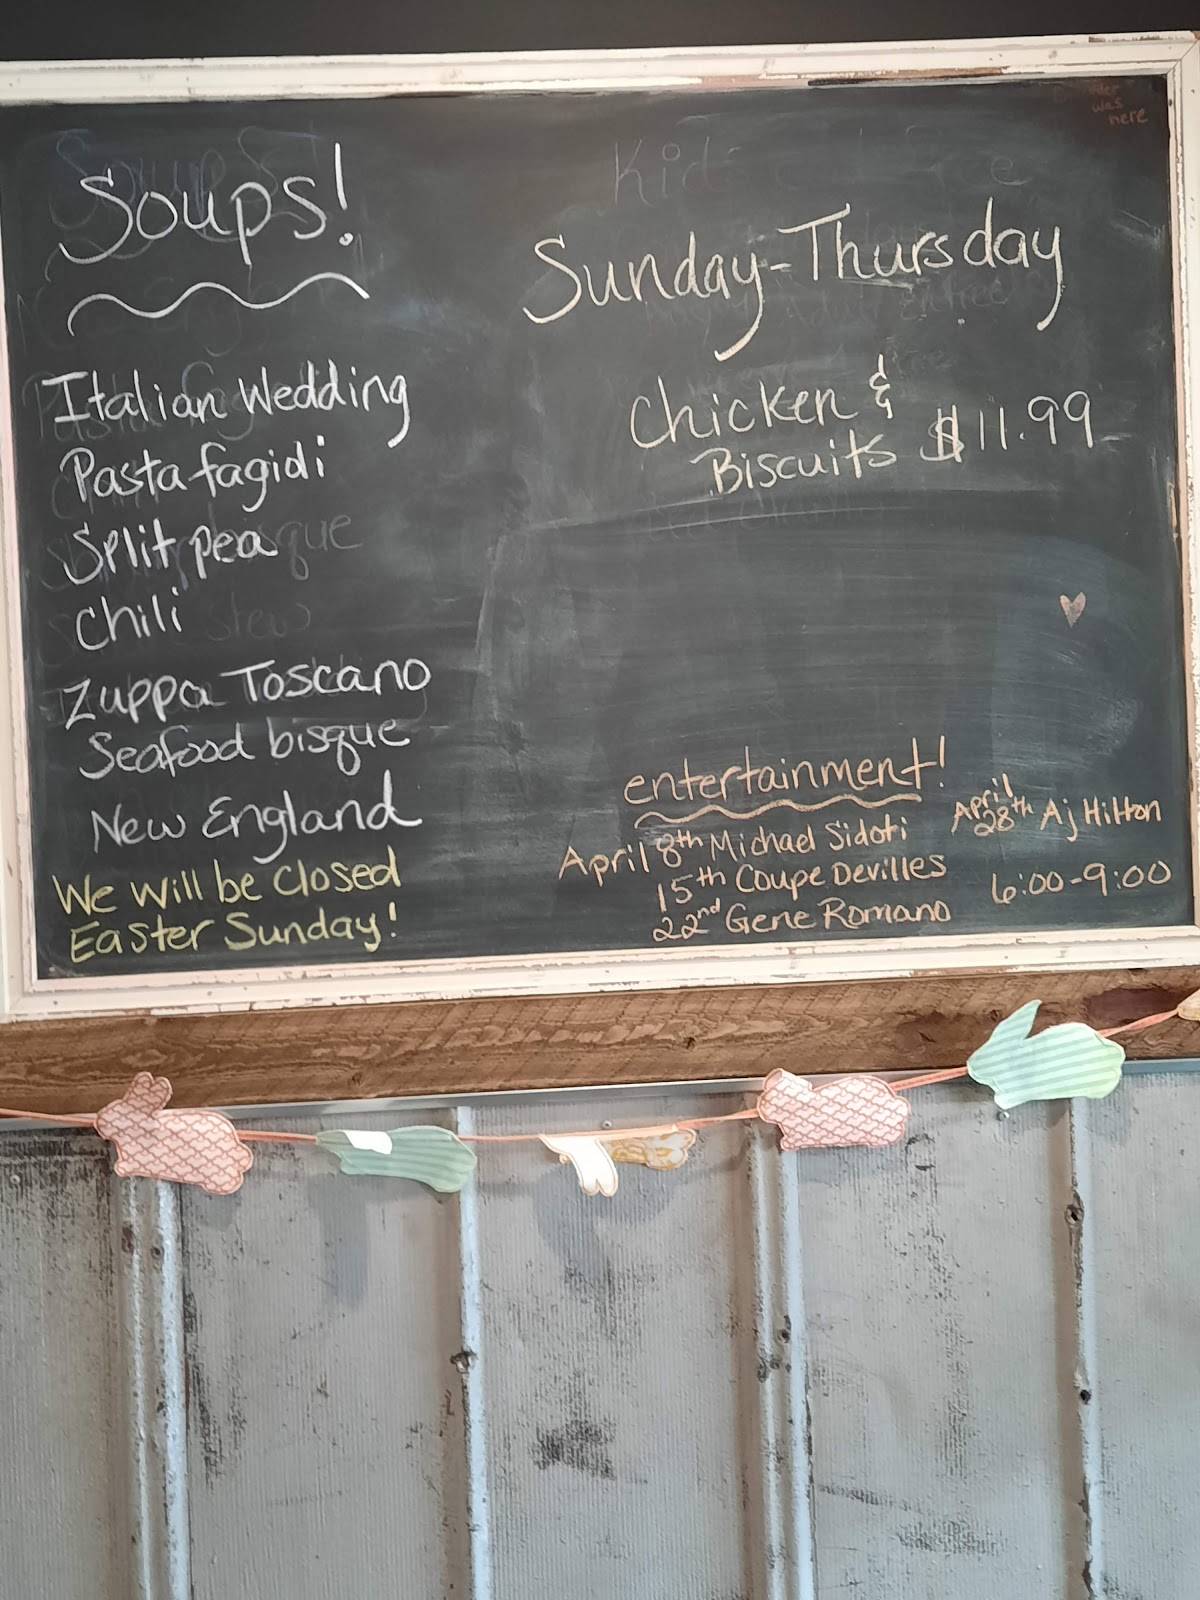 Soups!
Italian Wedding
Pasta fagidi
Split pea
Chili
Zuppa Toscano
Seafood bisque
New England
We will be closed
Easter Sunday!
Sunday-Thursday
Chicken &
Biscuits $11.99
entertainment!
April 8th Michael Sidoti
15th Coupe Devilles
22nd Gene Romano
April
28th Aj Hilton
6:00-9:00
was
here